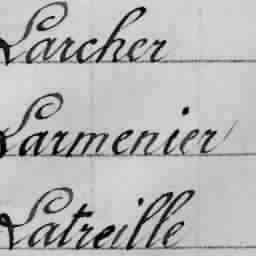 Larcher
Larmenier
Latreille